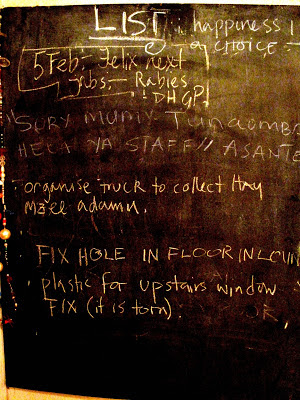 LIST happiness
of CHOICE
5 Feb: Felix next
Jabs:- Rabies
! DHGP!
"SORY MUMY TUNAOMBA
HELA YA STAFF" ASANTE
organise truck to collect Hay
mzee adamu.
FIX HOLE IN FLOOR IN
plastic for upstairs window
FIX (it is torn).